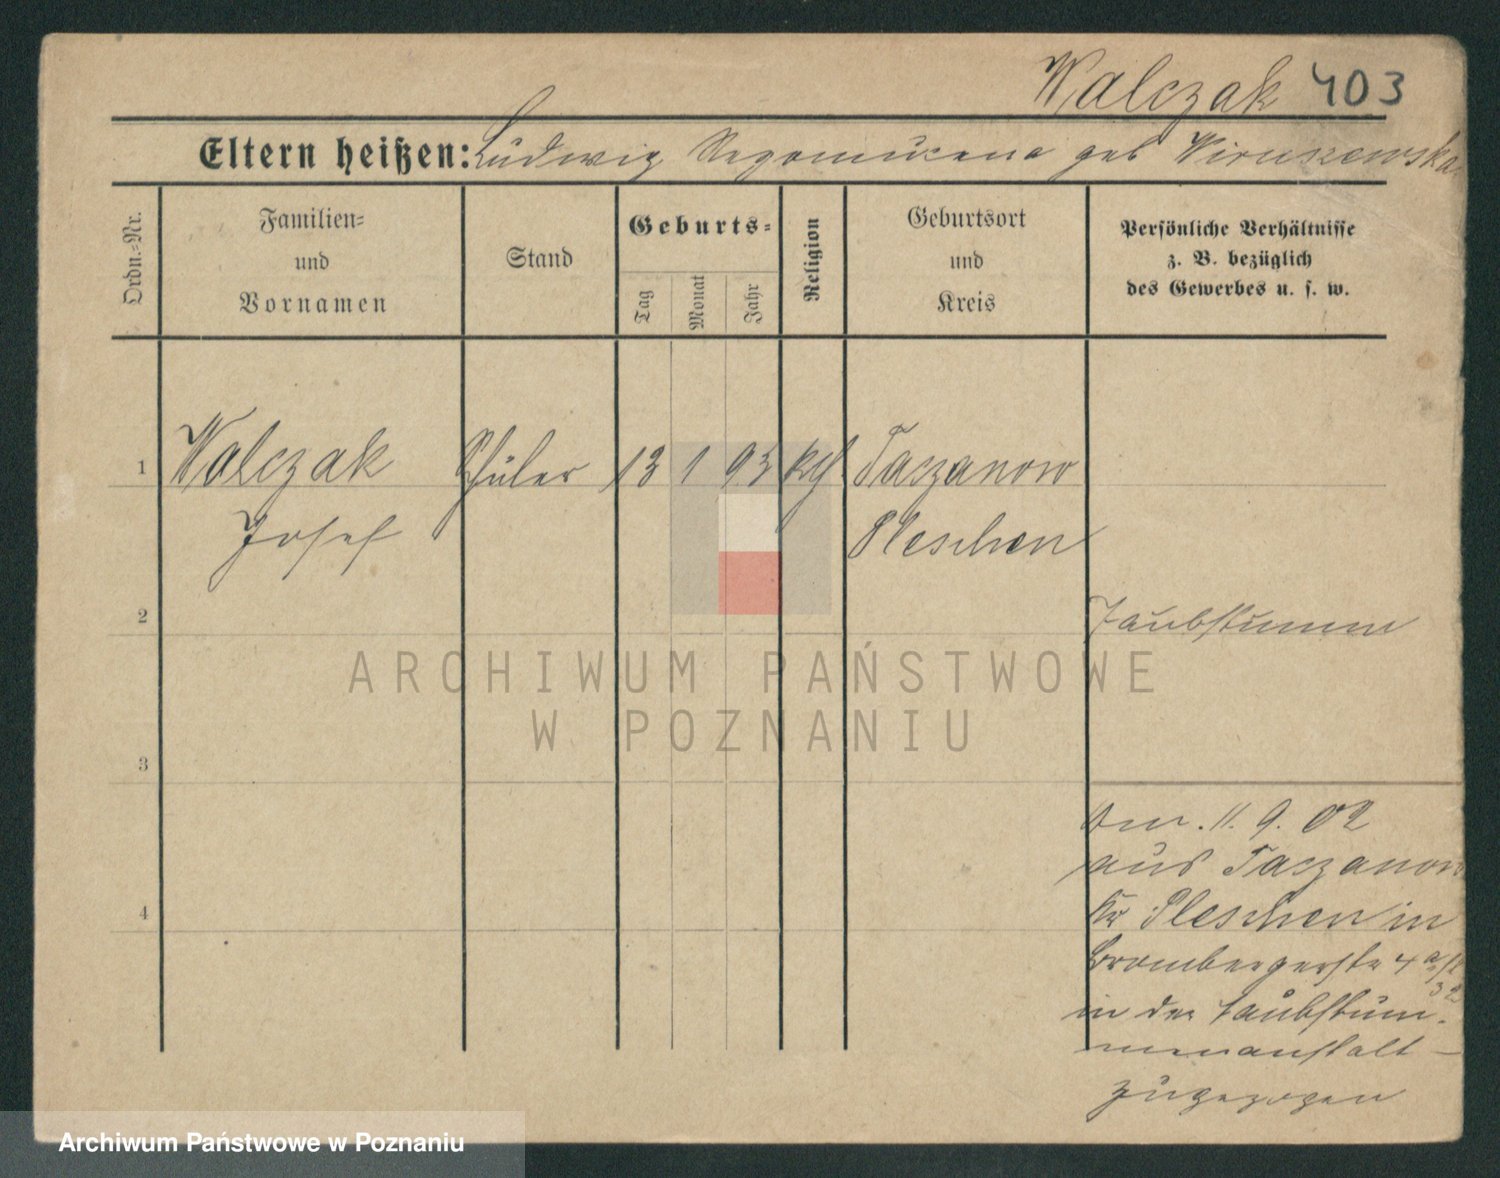 Walczak 403
Eltern heißen: Ludwig geb
Ordn.=Nr.
Familien=
und
Vornamen
Stand
Geburts=
Tag
Monat
Jahr
Religion
Geburtsort
und
Kreis
Persönliche Verhältnisse
z. B. bezüglich
des Gewerbes u. s. w.
1 Walczak Schüler 13 1 93 kth Taczanow
Josef Pleschen
2 Taubstumm
3
4
Am. 11. 9. 02
aus Taczanow
Kr Pleschen in
Brombergerstr 4
in der Taubstum-
menanstalt
zugezogen
ARCHIWUM PAŃSTWOWE
W POZNANIU
Archiwum Państwowe w Poznaniu